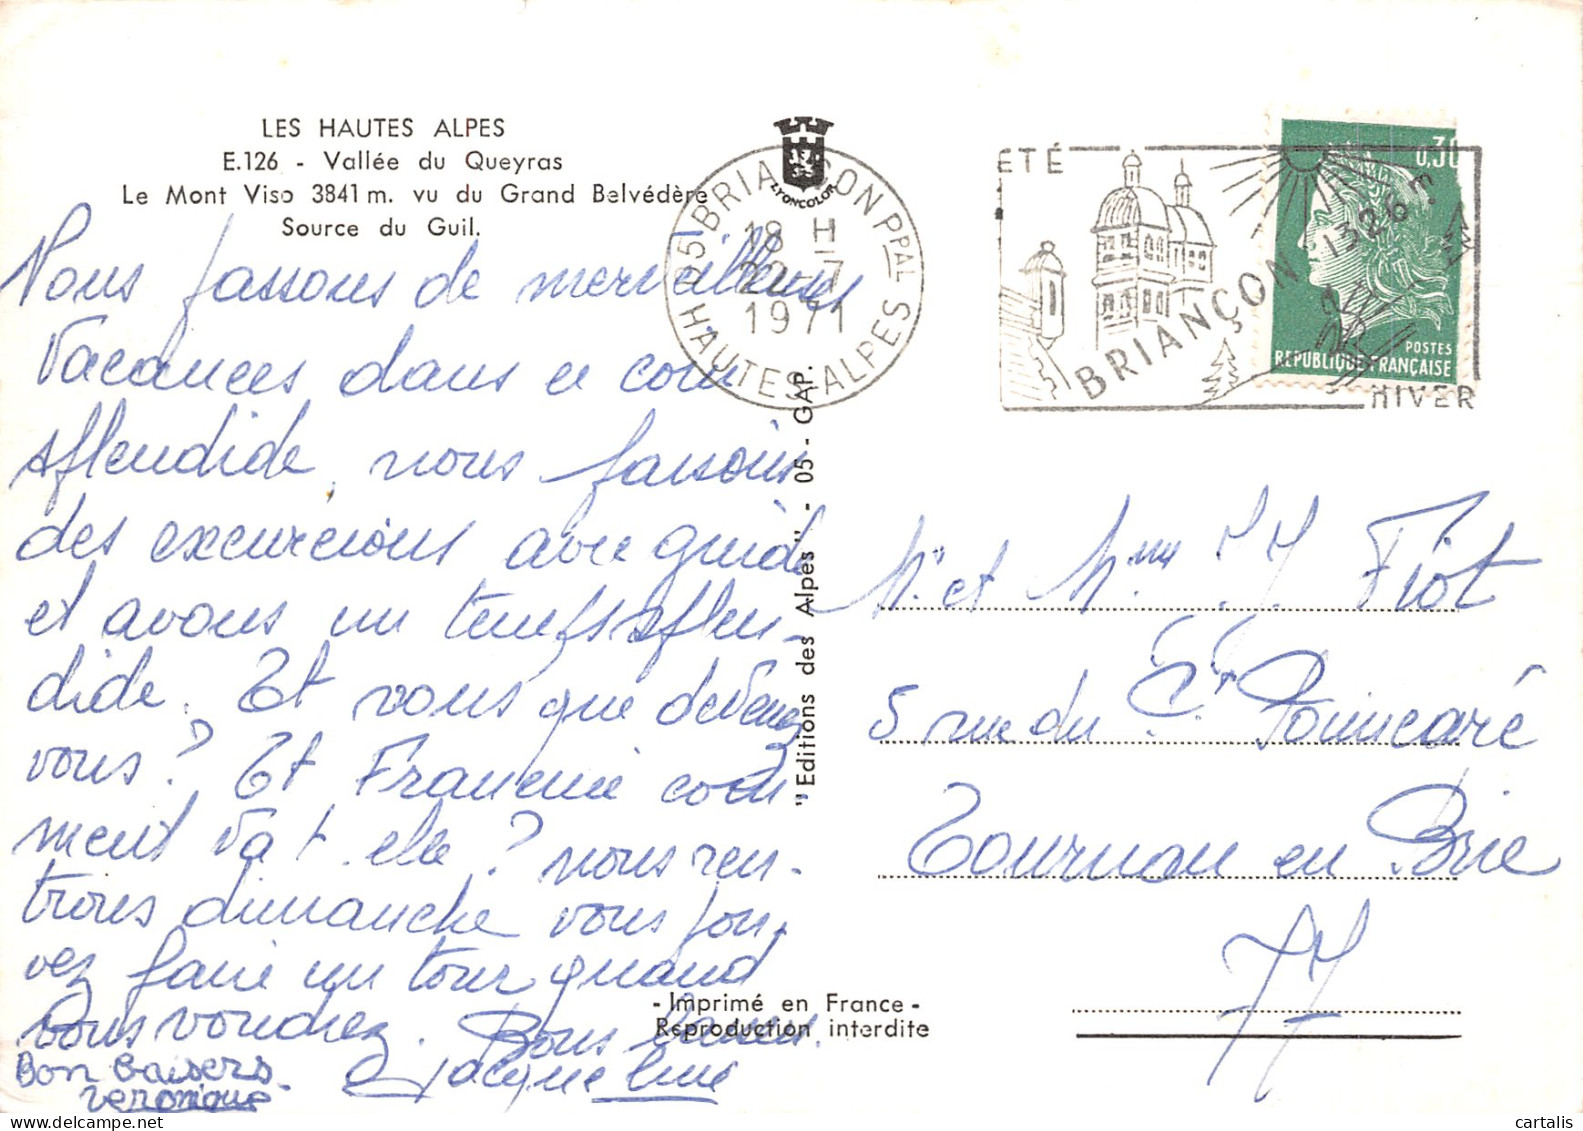 LES HAUTES ALPES
E.126 - Vallée du Queyras
Le Mont Viso 3841 m. vu du Grand Belvédère
Source du Guil.
Nous passons de merveilleuses
vacances dans ce coin
splendide, nous faisons
des excurcions avec guide
et avons un temps splen-
dide. Et vous que devenez
vous? Et Francine com-
ment va t. elle? nous ren-
trons dimanche vous pou-
vez faire un tour quand
vous voudrez. Bons baisers.
Jacqueline
Bon baisers
veronique
LYONCOLOR
05 BRIANÇON PPAL
18 H
22-7
1971
HAUTES-ALPES
"Editions des Alpes" - 05 - GAP.
- Imprimé en France -
Reproduction interdite
ETÉ
BRIANÇON 1326 m
HIVER
0,30
POSTES
REPUBLIQUE FRANÇAISE
Mr et Mme Fiot
5 rue du Ct Poincaré
Tournan en Brie
77
cartalis